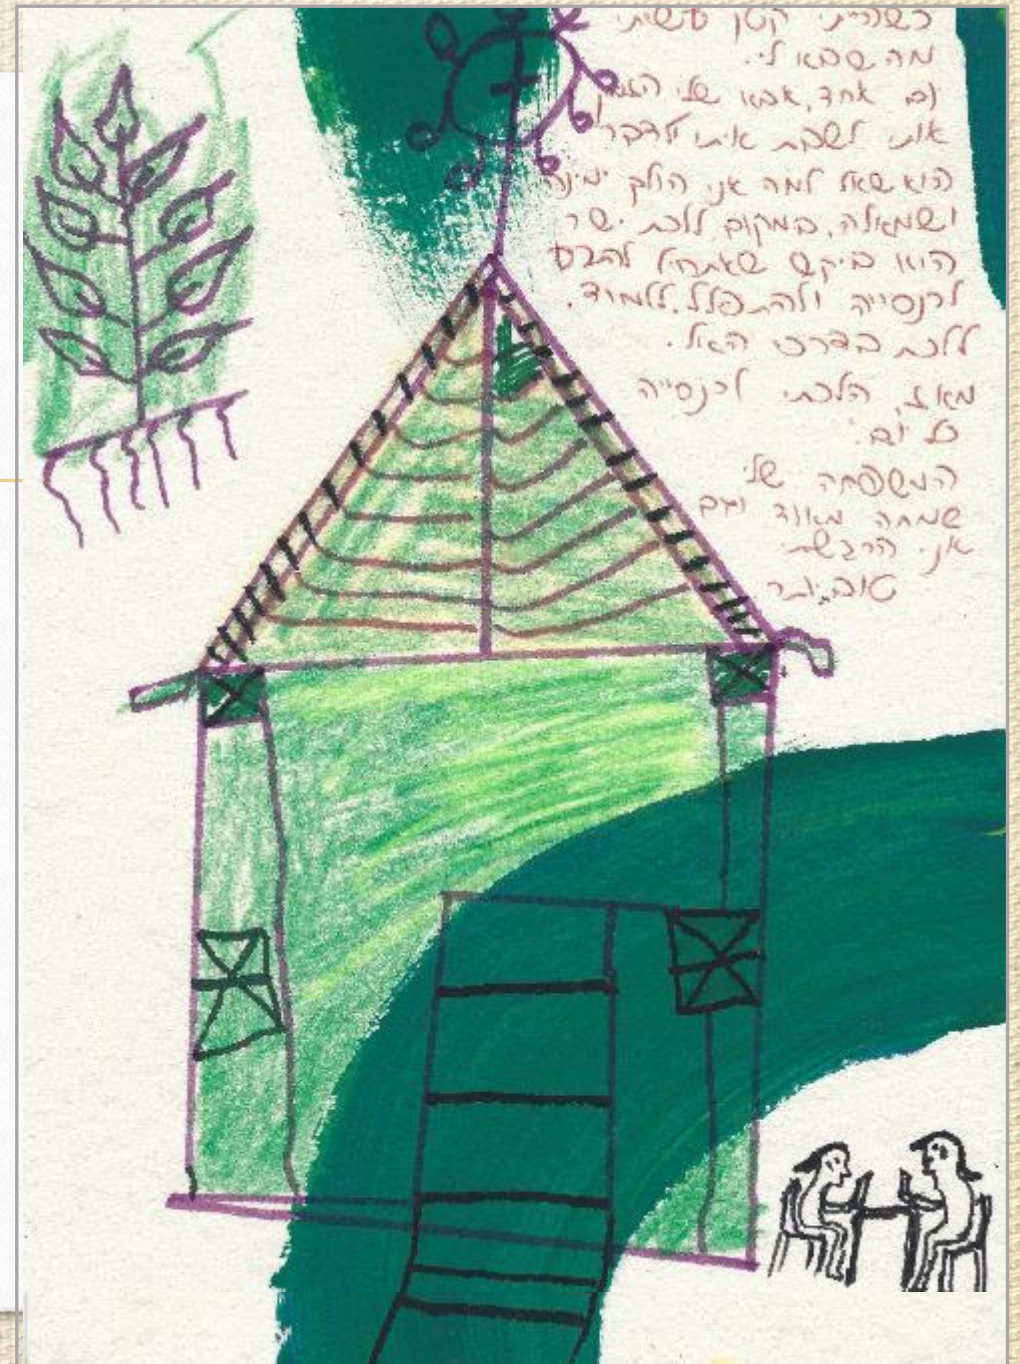 כשהייתי קטן עשיתי
מה שבא לי.
יום אחד, אבא שלי הזמין
אותי לשבת איתו ולדבר
הוא שאל למה אני הולך ימינה
ושמאלה, במקום ללכת ישר
הוא ביקש שאתחיל להכנס
לכנסייה ולהתפלל. ללמוד.
ללכת בדרכי האל.
מאז, הלכתי לכנסייה
כל יום.
המשפחה שלי
שמחה מאוד וגם
אני הרגשתי
טוב יותר